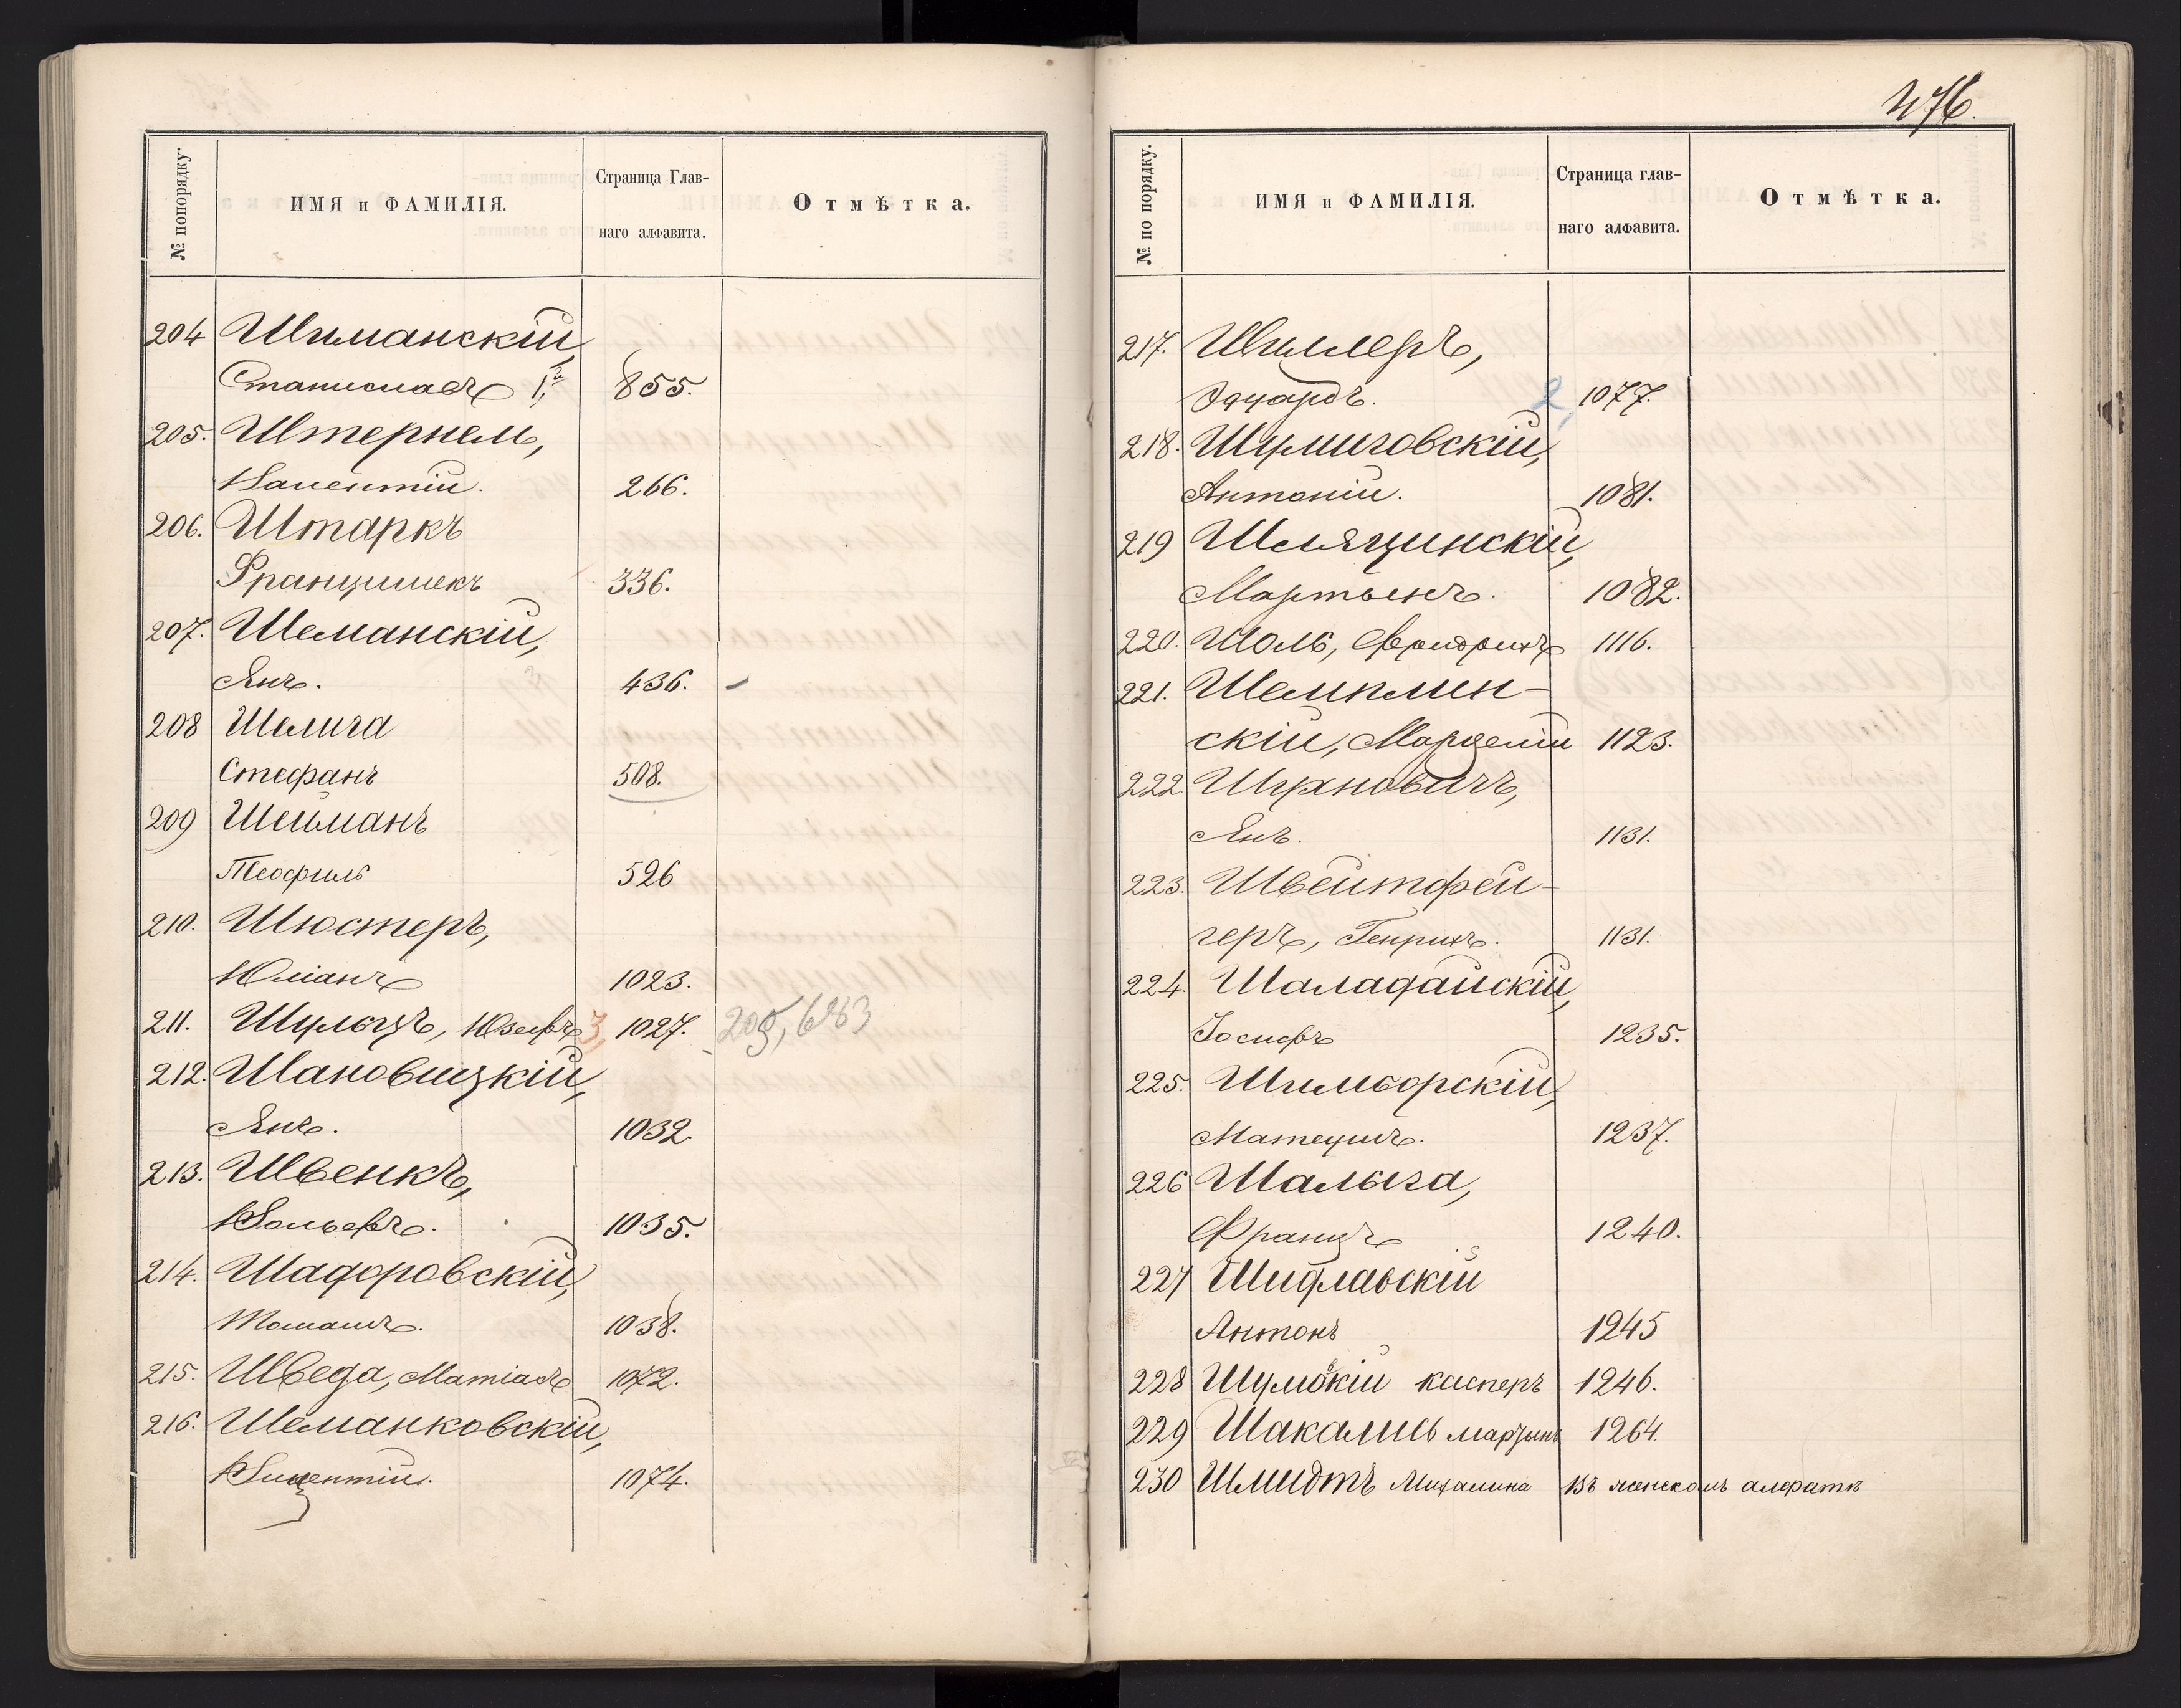 № попорядку.
ИМЯ и ФАМИЛІЯ.
Страница Глав-
наго алфавита.
Отмѣтка.
204 Шиманскій,
Станиславъ 1й 855.
205. Штернель,
266.
206. Штаркъ
Францишекъ 336.
207. Шеманскій,
Янъ. 436. -
208 Шелига
Стефанъ 508.
209 Шейманъ
Теофиль 526
210. Шюстеръ,
Юліанъ 1023.
211. Шульцъ, Юзефъ 3, 1027. 205, 683
212. Шановицкій,
Янъ. 1032.
213. Швенкъ,
1035.
214. Шадоровскій,
Томашъ. 1038.
215. Шведа, Матіасъ 1072.
216. Шеманковскій,
Вицентій. 1074.
476.
№ по порядку.
ИМЯ и ФАМИЛІЯ.
Страница глав-
наго алфавита.
Отмѣтка.
217. Шиллеръ,
Эдуардъ. 2, 1077.
218. Шумиговскій,
Антоній. 1081.
219 Шлязинскій,
Мартынъ. 1082.
220. Шоль, Фридрихъ 1116.
221. Шемплин-
скій, Марцелій 1123.
222 Шрановичъ,
Янъ. 1131.
223. Швейтфей-
геръ, Генрихъ. 1131.
224. Шаладайскій,
Іосифъ 1235.
225. Шимборскій,
Матеушъ. 1237.
226 Шалыга,
Францъ 1240.
227 Шидлавскій
Антонъ 1245
228 Шумскій касперъ 1246.
229 Шакалисъ марцинъ 1264.
230 Шмидтъ Михалина въ женскомъ алфатѣ